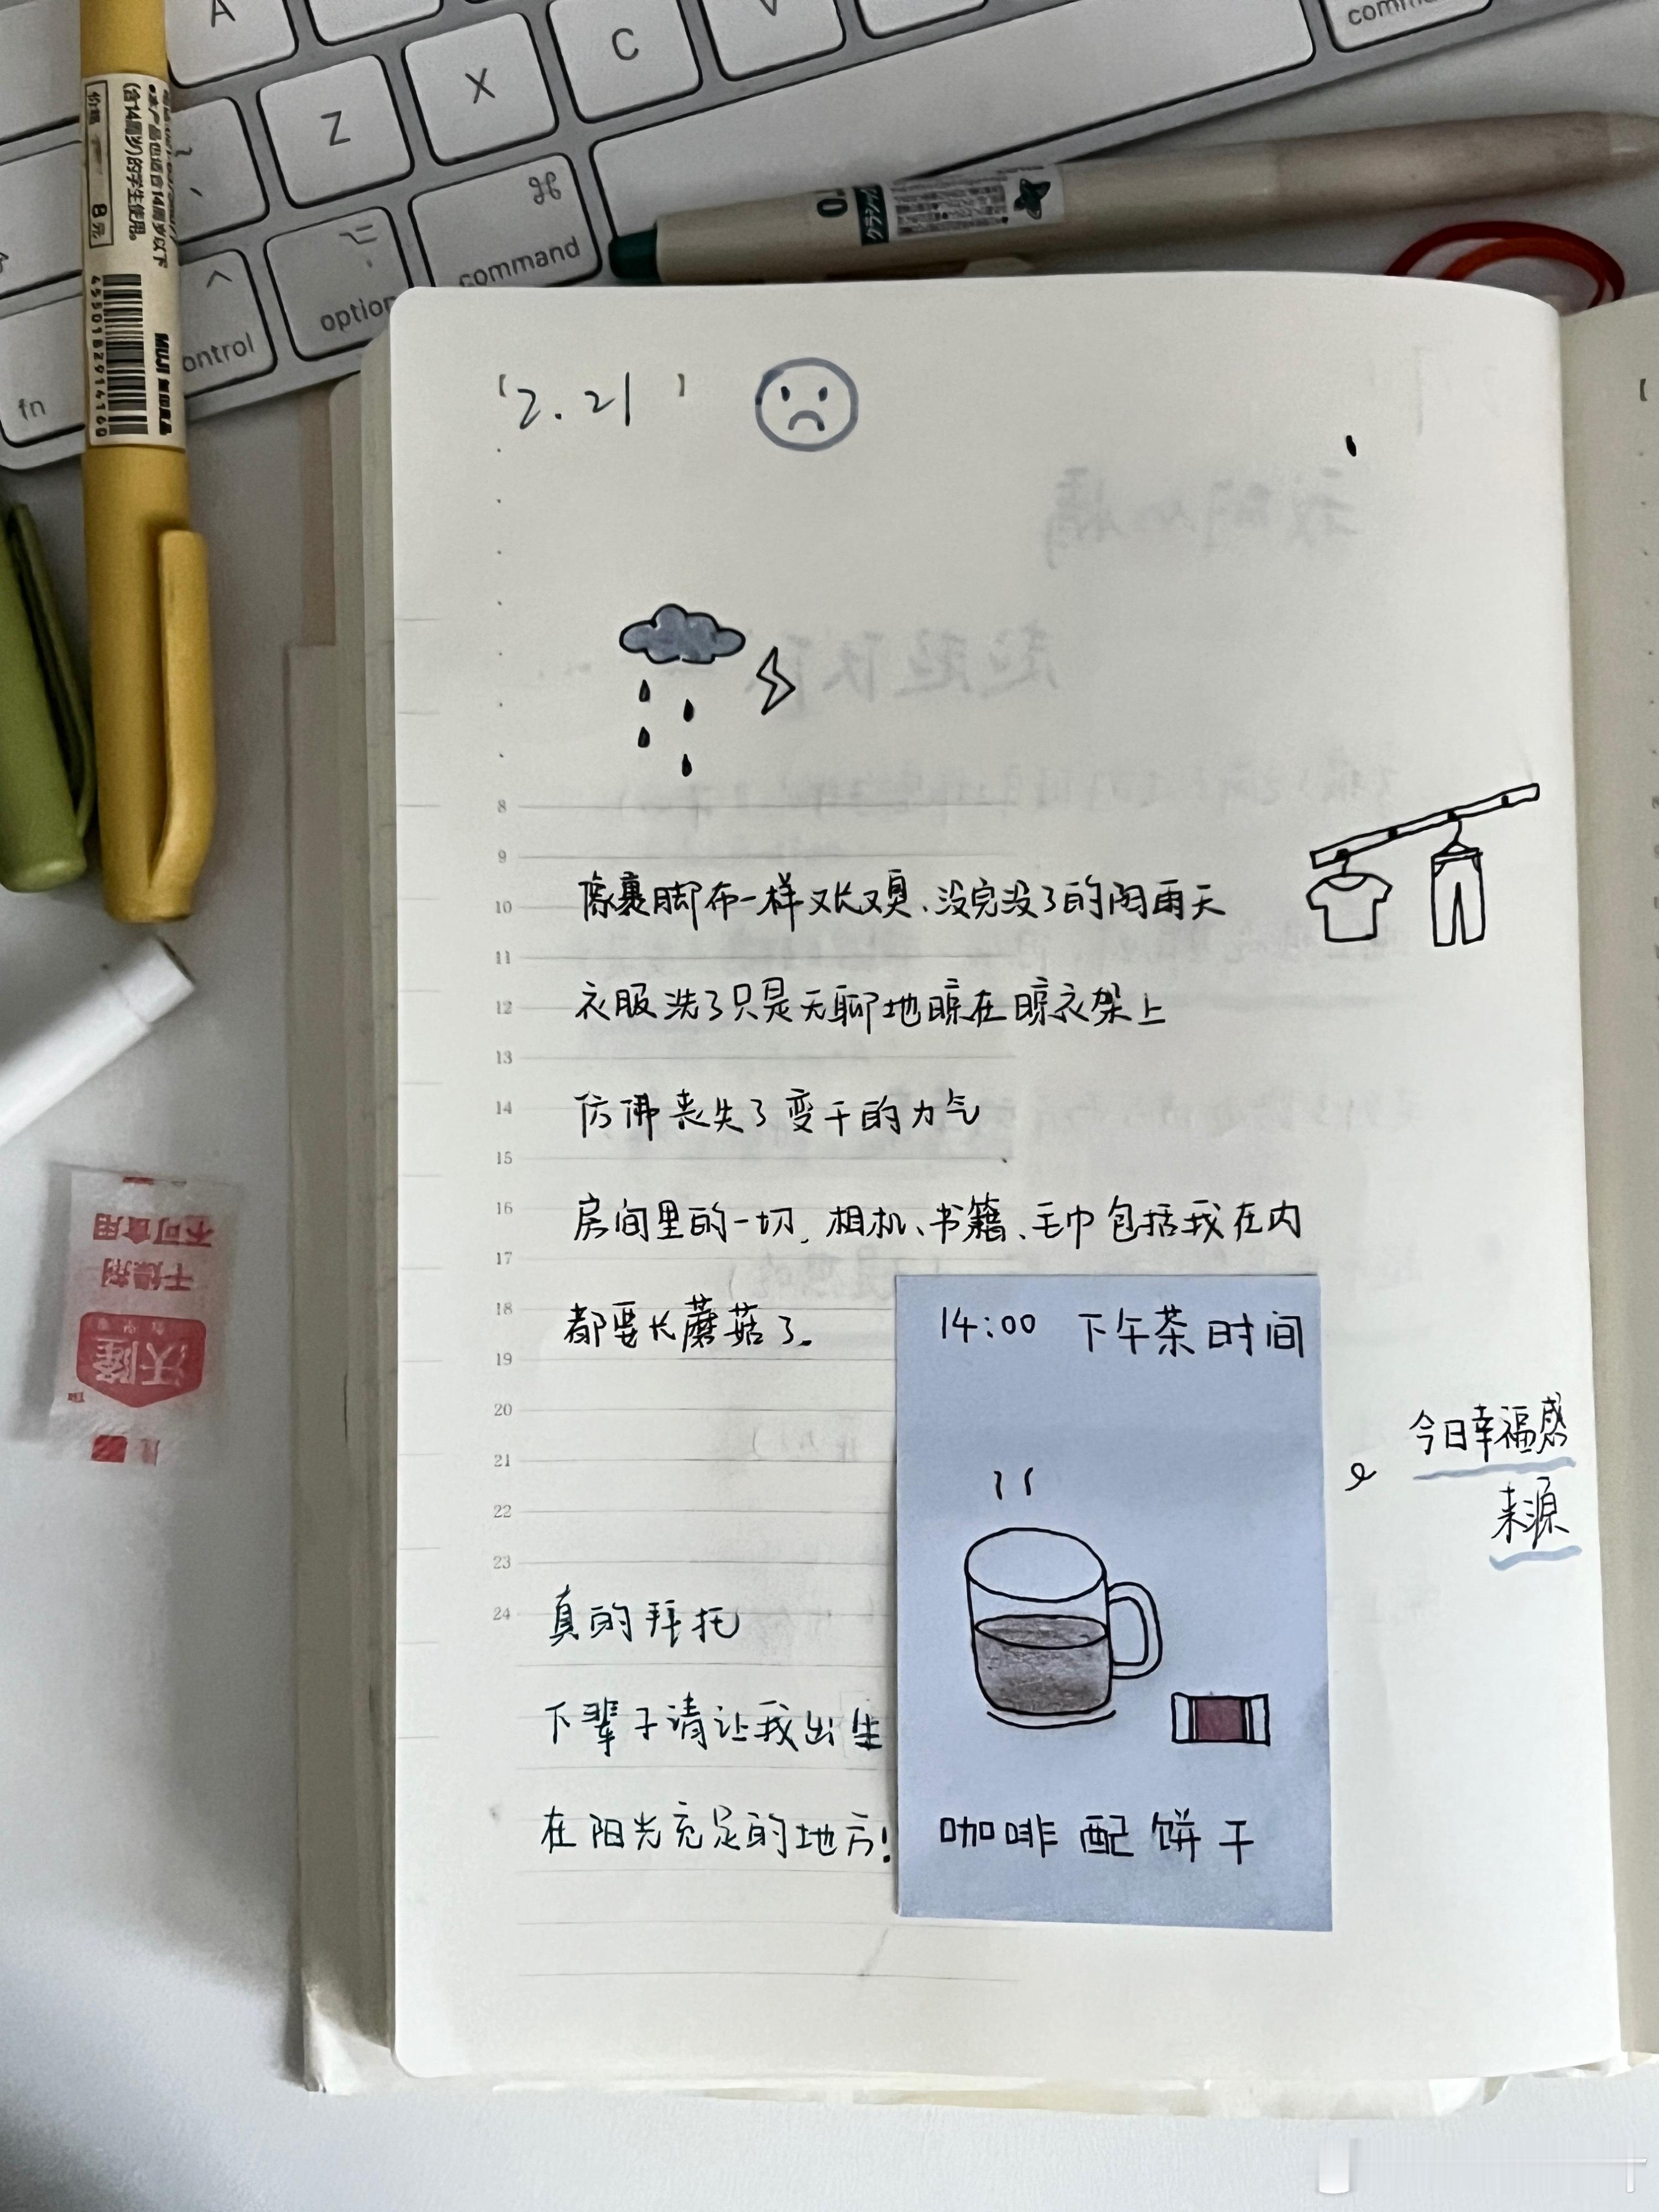 A
Z
X
C
V
⌘
command
⌥
option
^
fn
价格 8元
(含14周岁)的学生使用。
4550182914160
MUJI 無印良品
「2.21」
8
9
像裹脚布一样又长又臭、没完没了的阴雨天
10
11
衣服洗了只是无聊地晾在晾衣架上
12
13
仿佛丧失了变干的力气
14
15
房间里的一切,相机、书籍、毛巾包括我在内
16
17
都要长蘑菇了。
18
19
20
21
22
23
24
真的拜托
下辈子请让我出生
在阳光充足的地方!
14:00 下午茶时间
咖啡配饼干
今日幸福感
来源
沃隆
干燥剂
不可食用